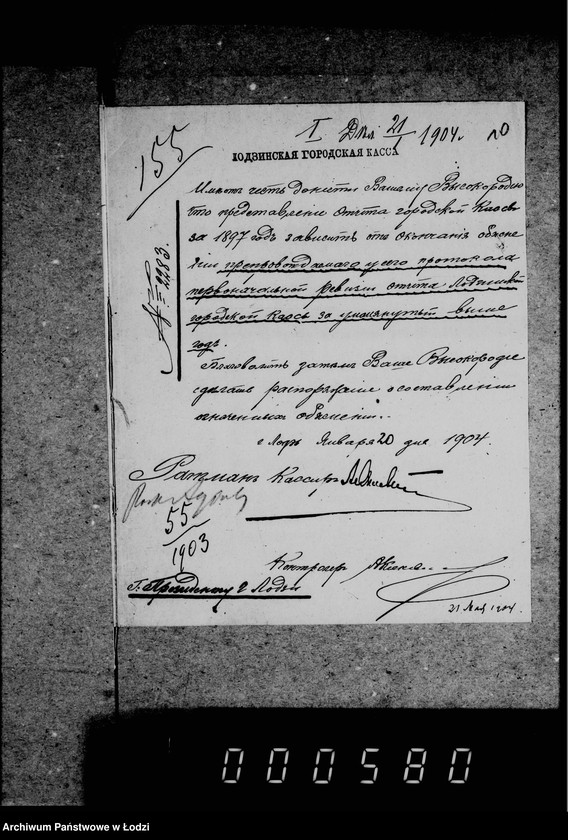 155
I Дня 21/I 1904 г.
ЛОДЗИНСКАЯ ГОРОДСКАЯ КАССА
№ 2283.
Имѣю честь донести Вашему Высокородію
что представленіе отчета городской Кассы
за 1897 годъ зависитъ отъ окончанія объясне
ній препровождаемаго у сего протокола
первоначальной ревизіи отчета Лодзинской
городской Кассы за упомянутый выше
годъ.
Благоволитъ затѣмъ Ваше Высокородіе
сдѣлать распоряженіе о составленіи
означенныхъ объясненій.
г. Лодзь Января 20 дня 1904
Ратманъ Кассиръ
55
1903
Контролеръ
Г. Президенту г. Лодзи
21 1904.
000580
Archiwum Państwowe w Łodzi